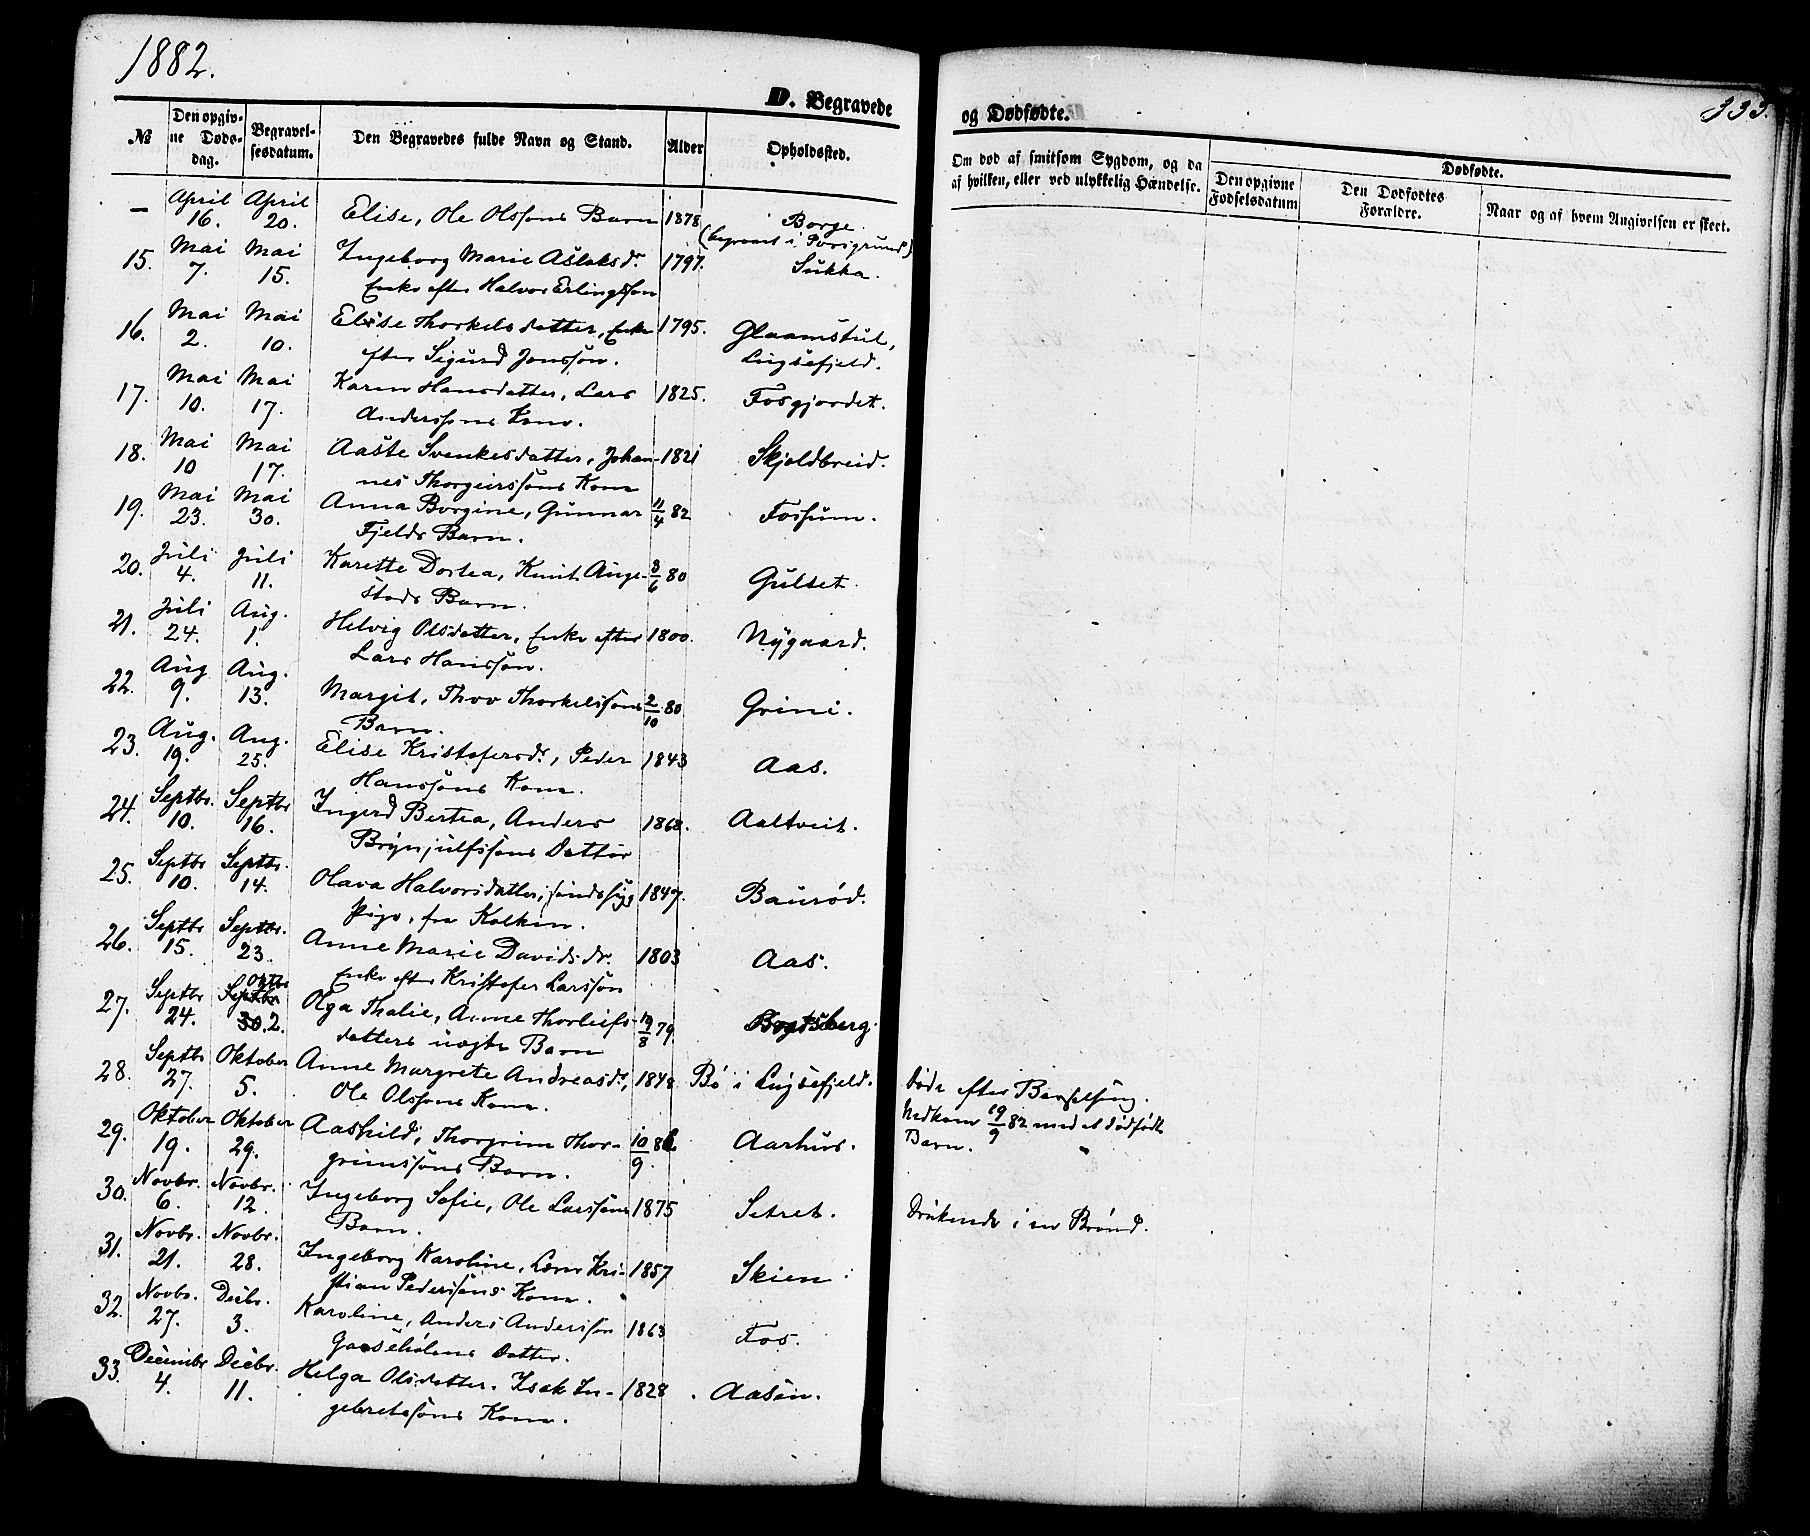 1882.
333.
D. Begravede
og Dødfødte.
№
Den opgivne Dødsdag.
Begravelsesdatum.
Den Begravedes fulde Navn og Stand.
Alder
Opholdssted.
Om død af smitsom Sygdom, og da
af hvilken, eller ved ulykkelig Hændelse.
Dødfødte.
Den opgivne Fødselsdatum
Den Dødfødtes Forældre.
Naar og af hvem Angivelsen er skeet.
— April 16. April 20. Elise, Ole Olssøns Barn 1878 Borge.
(begravet i Porsgrund)
15. Mai 7. Mai 15. Ingeborg Marie Aslaksd. 1797. Sukka.
Enke efter Halvor Erlingssøn
16. Mai 2. Mai 10. Elise Thorkelsdatter, Enke 1795. Glaamstul,
efter Sigurd Jonssøn. Luksefjeld.
17. Mai 10. Mai 17. Karen Hansdatter, Lars 1825. Fosgjordet.
Anderssøns Kone.
18. Mai 10 Mai 17. Aaste Svenkesdatter, Johan- 1821 Skjoldbreid.
nes Thorgeirssøns Kone
19. Mai 23. Mai 30. Anna Borgine, Gunnar 11/4 82 Fossum.
Fjelds Barn.
20. Juli 4. Juli 11. Karette Dortea, Knut Auge- 3/6 80 Gulset.
stads Barn.
21. Juli 24. Aug. 1. Helvig Olsdatter, Enke efter 1800. Nygaard.
Lars Hanssøn.
22. Aug 9. Aug. 13. Margit, Thov Thorkelssøns 2/10 80 Grini.
Barn.
23. Aug. 19. Aug. 25. Elise Kristofersd., Peder 1843 Aas.
Hanssøns Kone.
24. Septbr. 10. Septbr 16. Ingerd Bertea, Anders 1868. Aaltveit.
Brynjulfssøns Datter
25. Septbr 10. Septbr. 14. Olava Halvorsdatter, sindssyg 1847. Baurød.
Pige, fra Kolken.
26. Septbr 15. Septbr. 23. Anne Marie Davidsdr. 1803 Aas.
Enke efter Kristofer Larssøn
27. Septbr 24. Septbr 30. Oktbr 2. Olga Thalie, Anne Thorleifs- 19/8 79. Bogtsberg.
datters uægte Barn
28. Septbr 27. Oktober 5. Anne Margrete Andreasd., 1848 Bø i Luksefjeld. Døde efter Barselseng.
Ole Olssøns Kone. Nedkom 19/9 82 med et dødfødt
Barn.
29. Oktober 19. Oktober 29. Aashild, Thorgrim Thor- 10/9 Aarhus.
grimssøns Barn.
30. Novbr. 6. Novbr. 12. Ingeborg Sofie, Ole Larssøns 1875 Setret. Druknede i en Brønd.
Barn.
31. Novbr. 21. Novbr. 28. Ingeborg Karoline, Lærer Kri- 1857 Skien.
stian Pederssøns Kone.
32. Novbr. 27. Decbr. 3. Karoline, Anders Anderssøn 1863 Fos.
Gaaseholms Datter.
33. Decembr 4. Decbr. 11. Helga Olsdatter. Isak In- 1828 Aasen.
gebretssøns Kone.